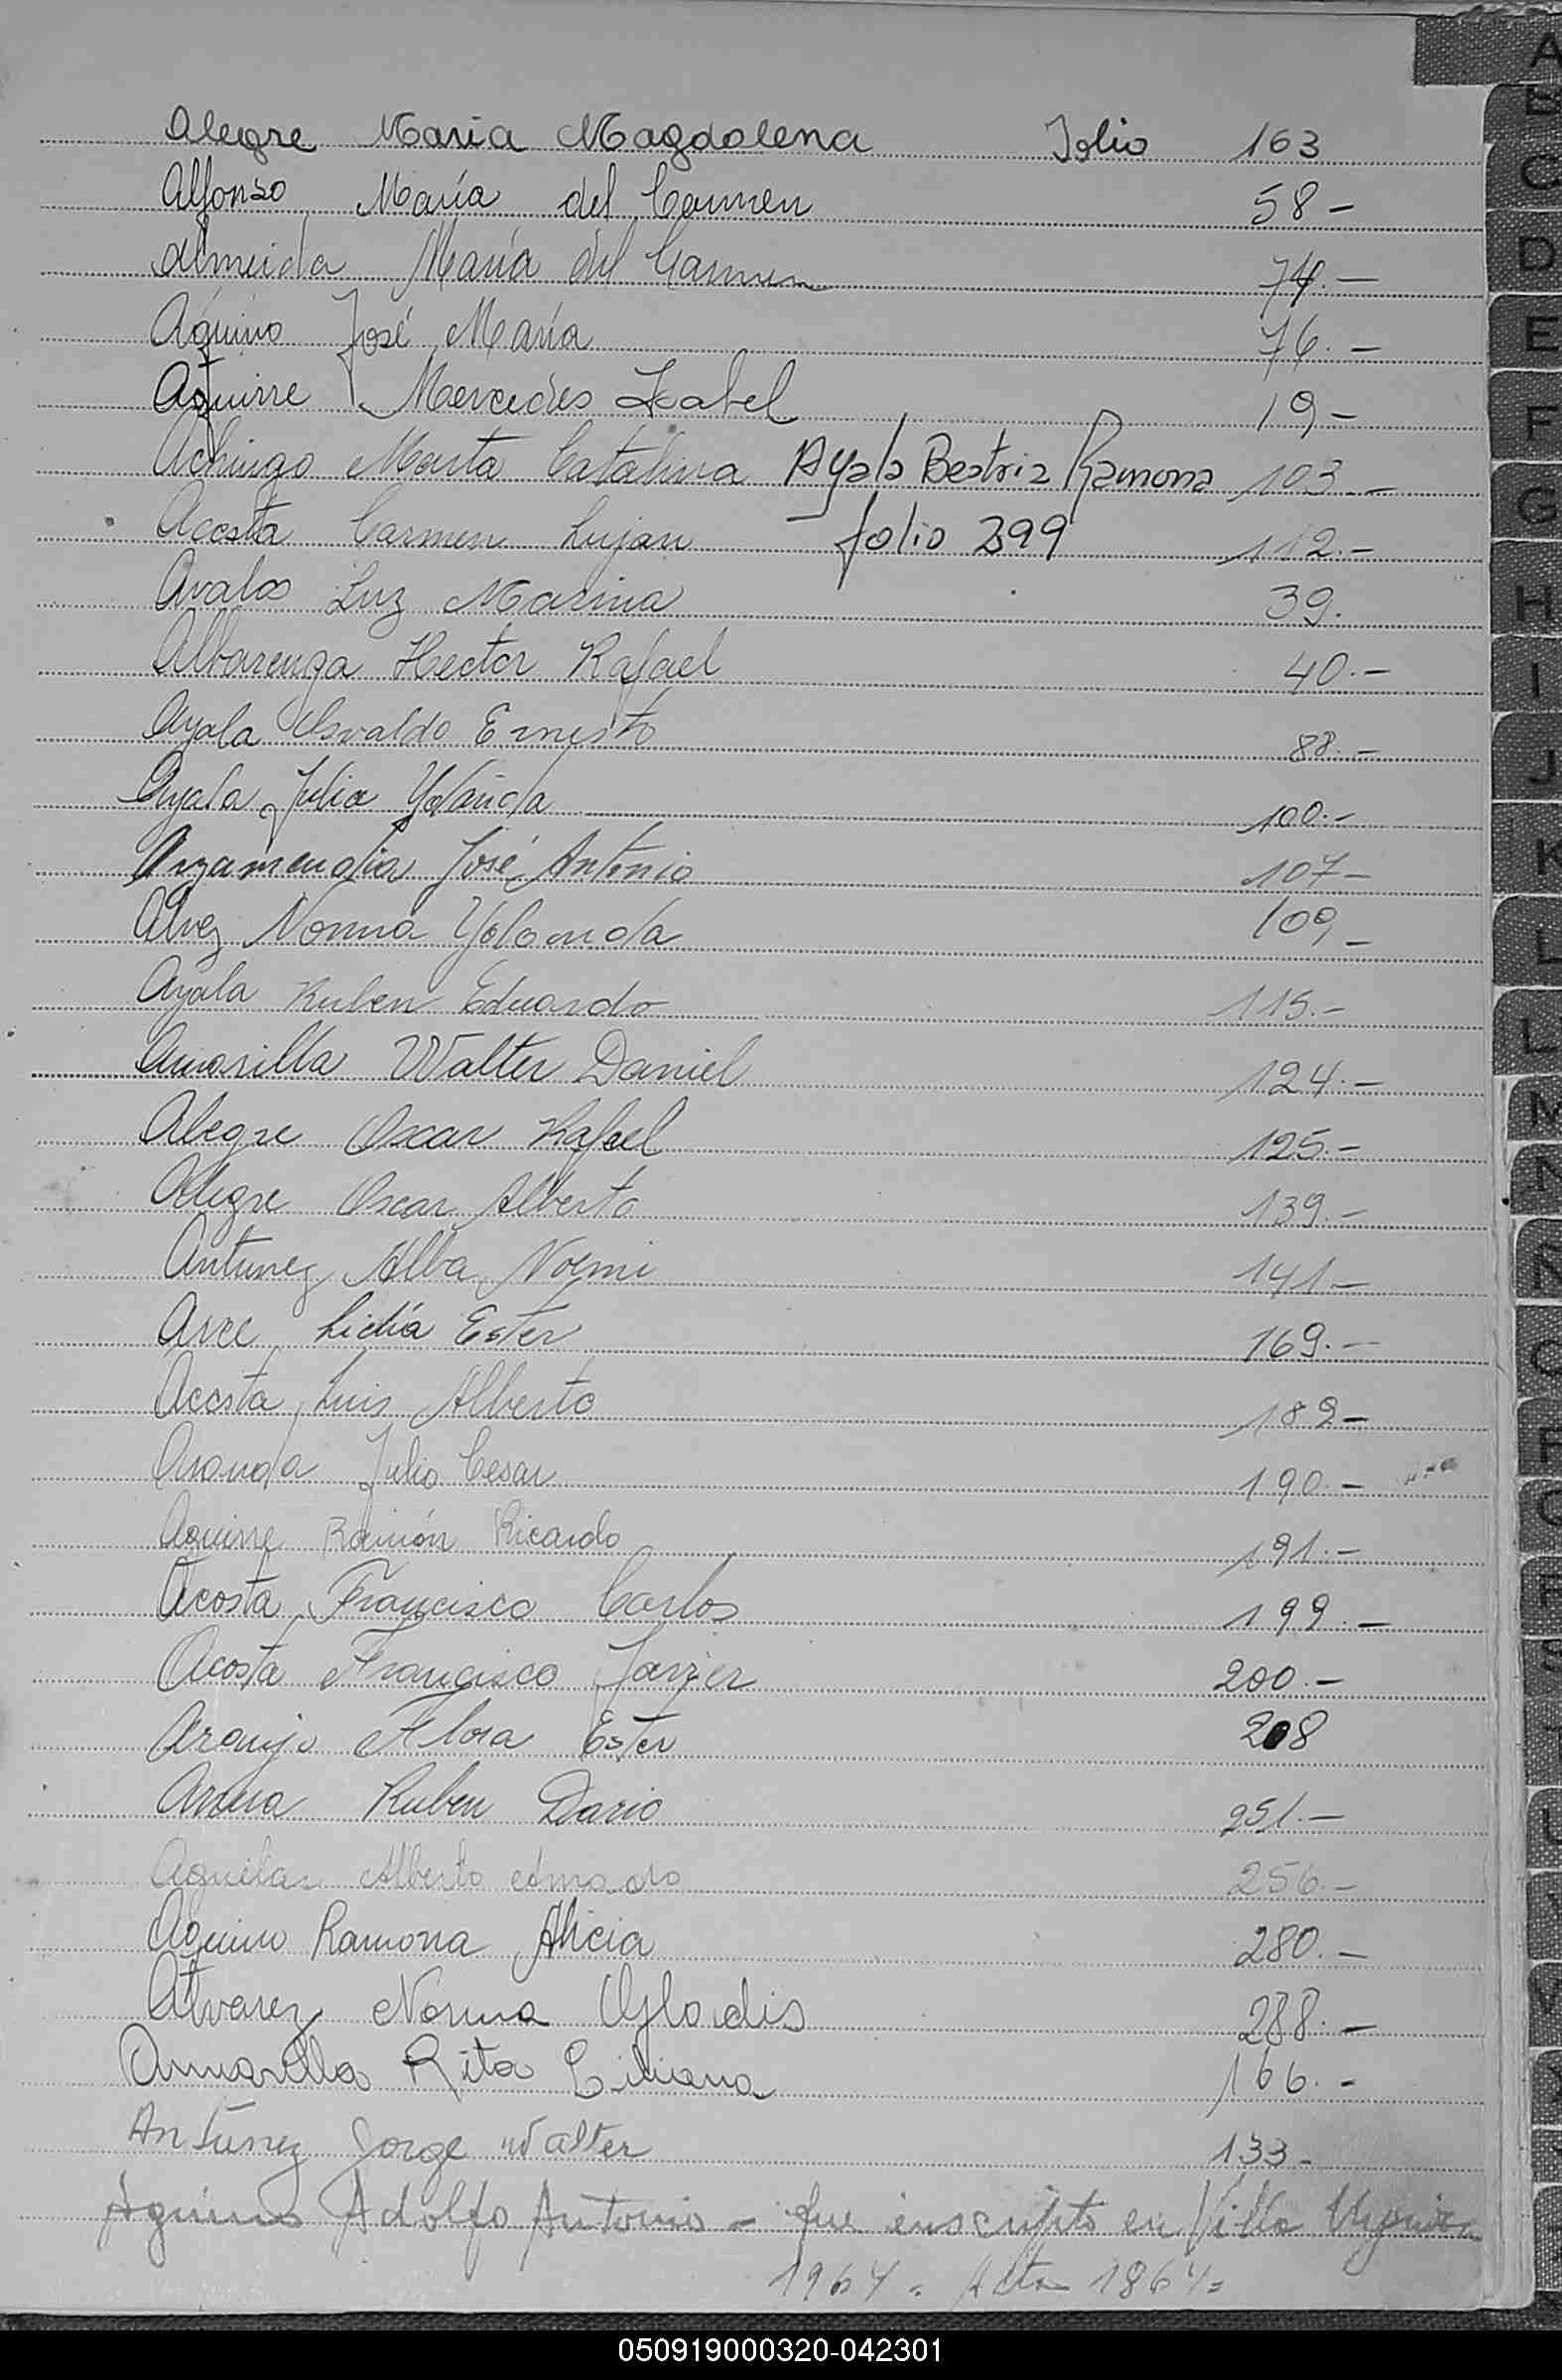 Alegre Maria Magdalena Folio 163
Alfonso María del Carmen 58 -
Almeida María del Carmen 74. -
Aquino José María 76. -
Aguirre Mercedes Isabel 19 -
Achingo Marta Catalina 103 -
Ayala Beatriz Ramona
Acosta Carmen Lujan 112. -
folio 399
Avalos Luz Marina 39.
Albarenga Hector Rafael 40. -
Ayala Osvaldo Ernesto 88. -
Ayala Julia Yolanda 100. -
Arzamendia José Antonio 107 -
Alvez Norma Yolanda 109 -
Ayala Ruben Eduardo 115. -
Amarilla Walter Daniel 124. -
Alegre Oscar Rafael 125. -
Alegre Oscar Alberto 139. -
Antunez Alba Noemi 141 -
Arce Lidia Ester 169. -
Acosta Luis Alberto 189 -
Aranda Julio Cesar 190. -
Aguirre Ramón Ricardo 191. -
Acosta Francisco Carlos 199. -
Acosta Francisco Javier 200. -
Araujo Flora Ester 208
Ruben Dario 251. -
Aguilar Alberto Amado 256. -
Aquino Ramona Alicia 280. -
Alvarez Norma Gladis 288. -
Amarilla Rita Liliana 166. -
Antunez Jorge Walter 133 -
Aquino Adolfo Antonio - fue inscripto en Villa
1964 = Acta 1864 =
A
B
C
D
E
F
G
H
I
J
K
L
L
N
050919000320-042301